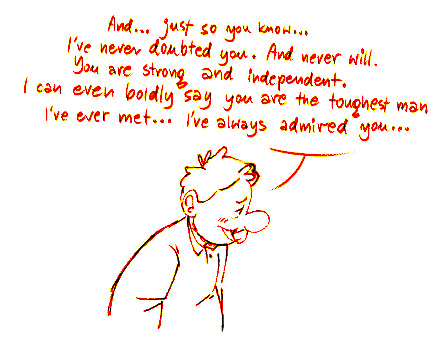 And... just so you know...
I've never doubted you. And never will.
You are strong and independent.
I can even boldly say you are the toughest man
I've ever met... I've always admired you...